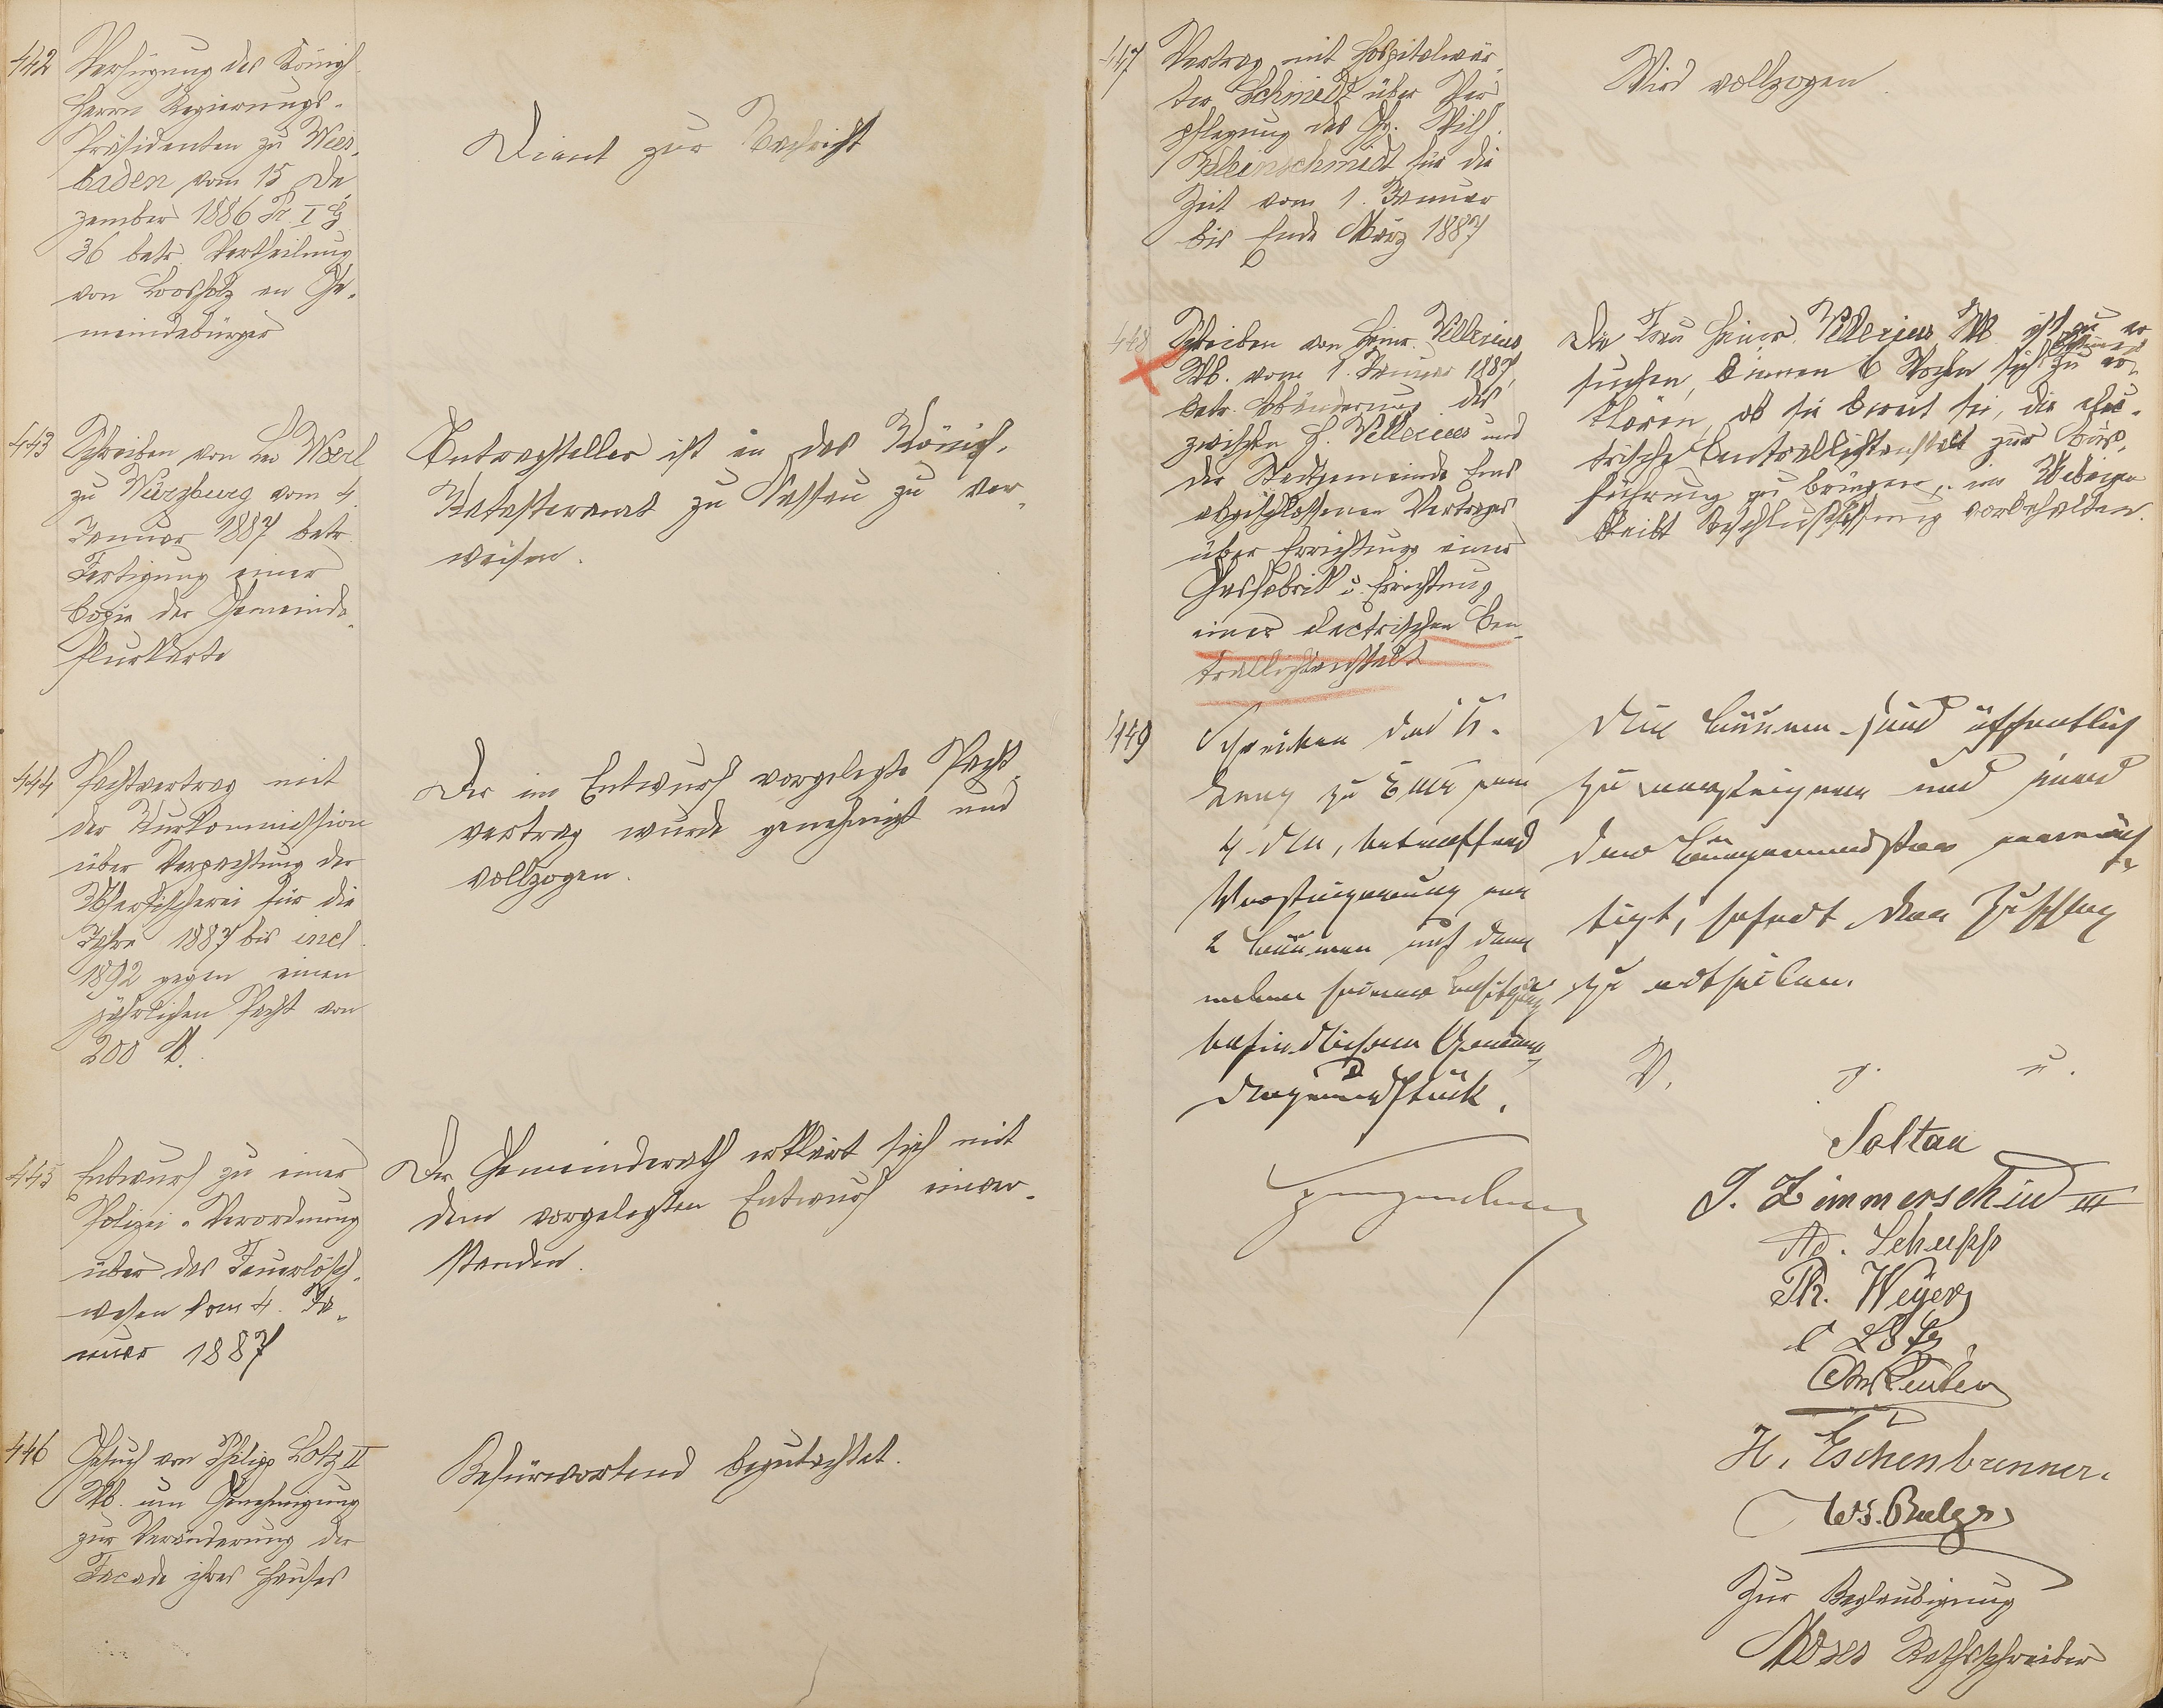 442 Verfügung des Königl.
Herrn Regierungs-
Präsidenten zu Wies-
baden vom 15 De
zember 1886 Pr. I G
36 betr. Vertheilung
von Loosholz an Ge-
meindebürger
Dient zur Nachricht
443 Schreiben von Leo Woerl
zu Würzburg vom 4
Januar 1887 betr.
Fertigung einer
Copie der Gemeinde-
flurkarte
Antragsteller ist an das Königl.
Katasteramt zu Nassau zu ver-
weisen.
444 Pachtvertrag mit
der Kurkommission
über Verpachtung der
Fischerei für die
Jahre 1887 bis incl
1892 gegen einen
jährlichen Pacht von
200 M.
Der im Entwurf vorgelegte Pacht-
vertrag wurde genehmigt und
vollzogen.
445 Entwurf zu einer
Polizei-Verordnung
über das Feuerlösch-
wesen vom 4. Ja-
nuar 1887
Der Gemeinderath erklärt sich mit
dem vorgelegten Entwurf einver-
standen.
446 Gesuch von Philipp Lotz II
Wb. um Genehmigung
zur Veränderung der
Facade ihres Hauses
Befürwortend begutachtet.
447 Vertrag mit Hospitalwär-
ter Schmidt über Ver-
pflegung des Gg. Wilh.
Kleinschmidt für die
Zeit vom 1. Januar
bis Ende März 1887
Wird vollzogen.
448 Schreiben von Heinr. Vellerius
Wb. vom 1. Januar 1887,
betr. Abänderung des
zwischen H. Vellerius und
der Stadtgemeinde Ems
abgeschlossenen Vertrages
über Errichtung einer
Gasfabrik u. Errichtung
einer electrischen Cen-
trallichtanstalt
Die Frau Heinr. Vellerius Wb. ist zu er
suchen, binnen 6 Wochen sich zu er-
klären, ob sie bereit sei, die elec-
trische Centrallichtanstalt zur Aus-
führung zu bringen, im Uebrigen
bleibt Beschlußfassung vorbehalten.
449 Schreiben des
zu Ems vom
4. dM, betreffend
Versteigerung von
2 Bäumen auf dem
neben seiner Besitzung
befindlichen Gemein-
degrundstück.
Die Bäume sind öffentlich
zu versteigern und wird
der Bürgermeister ermäch-
tigt, sofort den Zuschlag
zu ertheilen.
V. g. u.
Soltau
J. Zimmerschied III
Ad. Schupp
Ph. Weyer
C Lotz
H. Eschenbrenner.
W. Balzer
Zur Beglaubigung
Moses Rathsschreiber